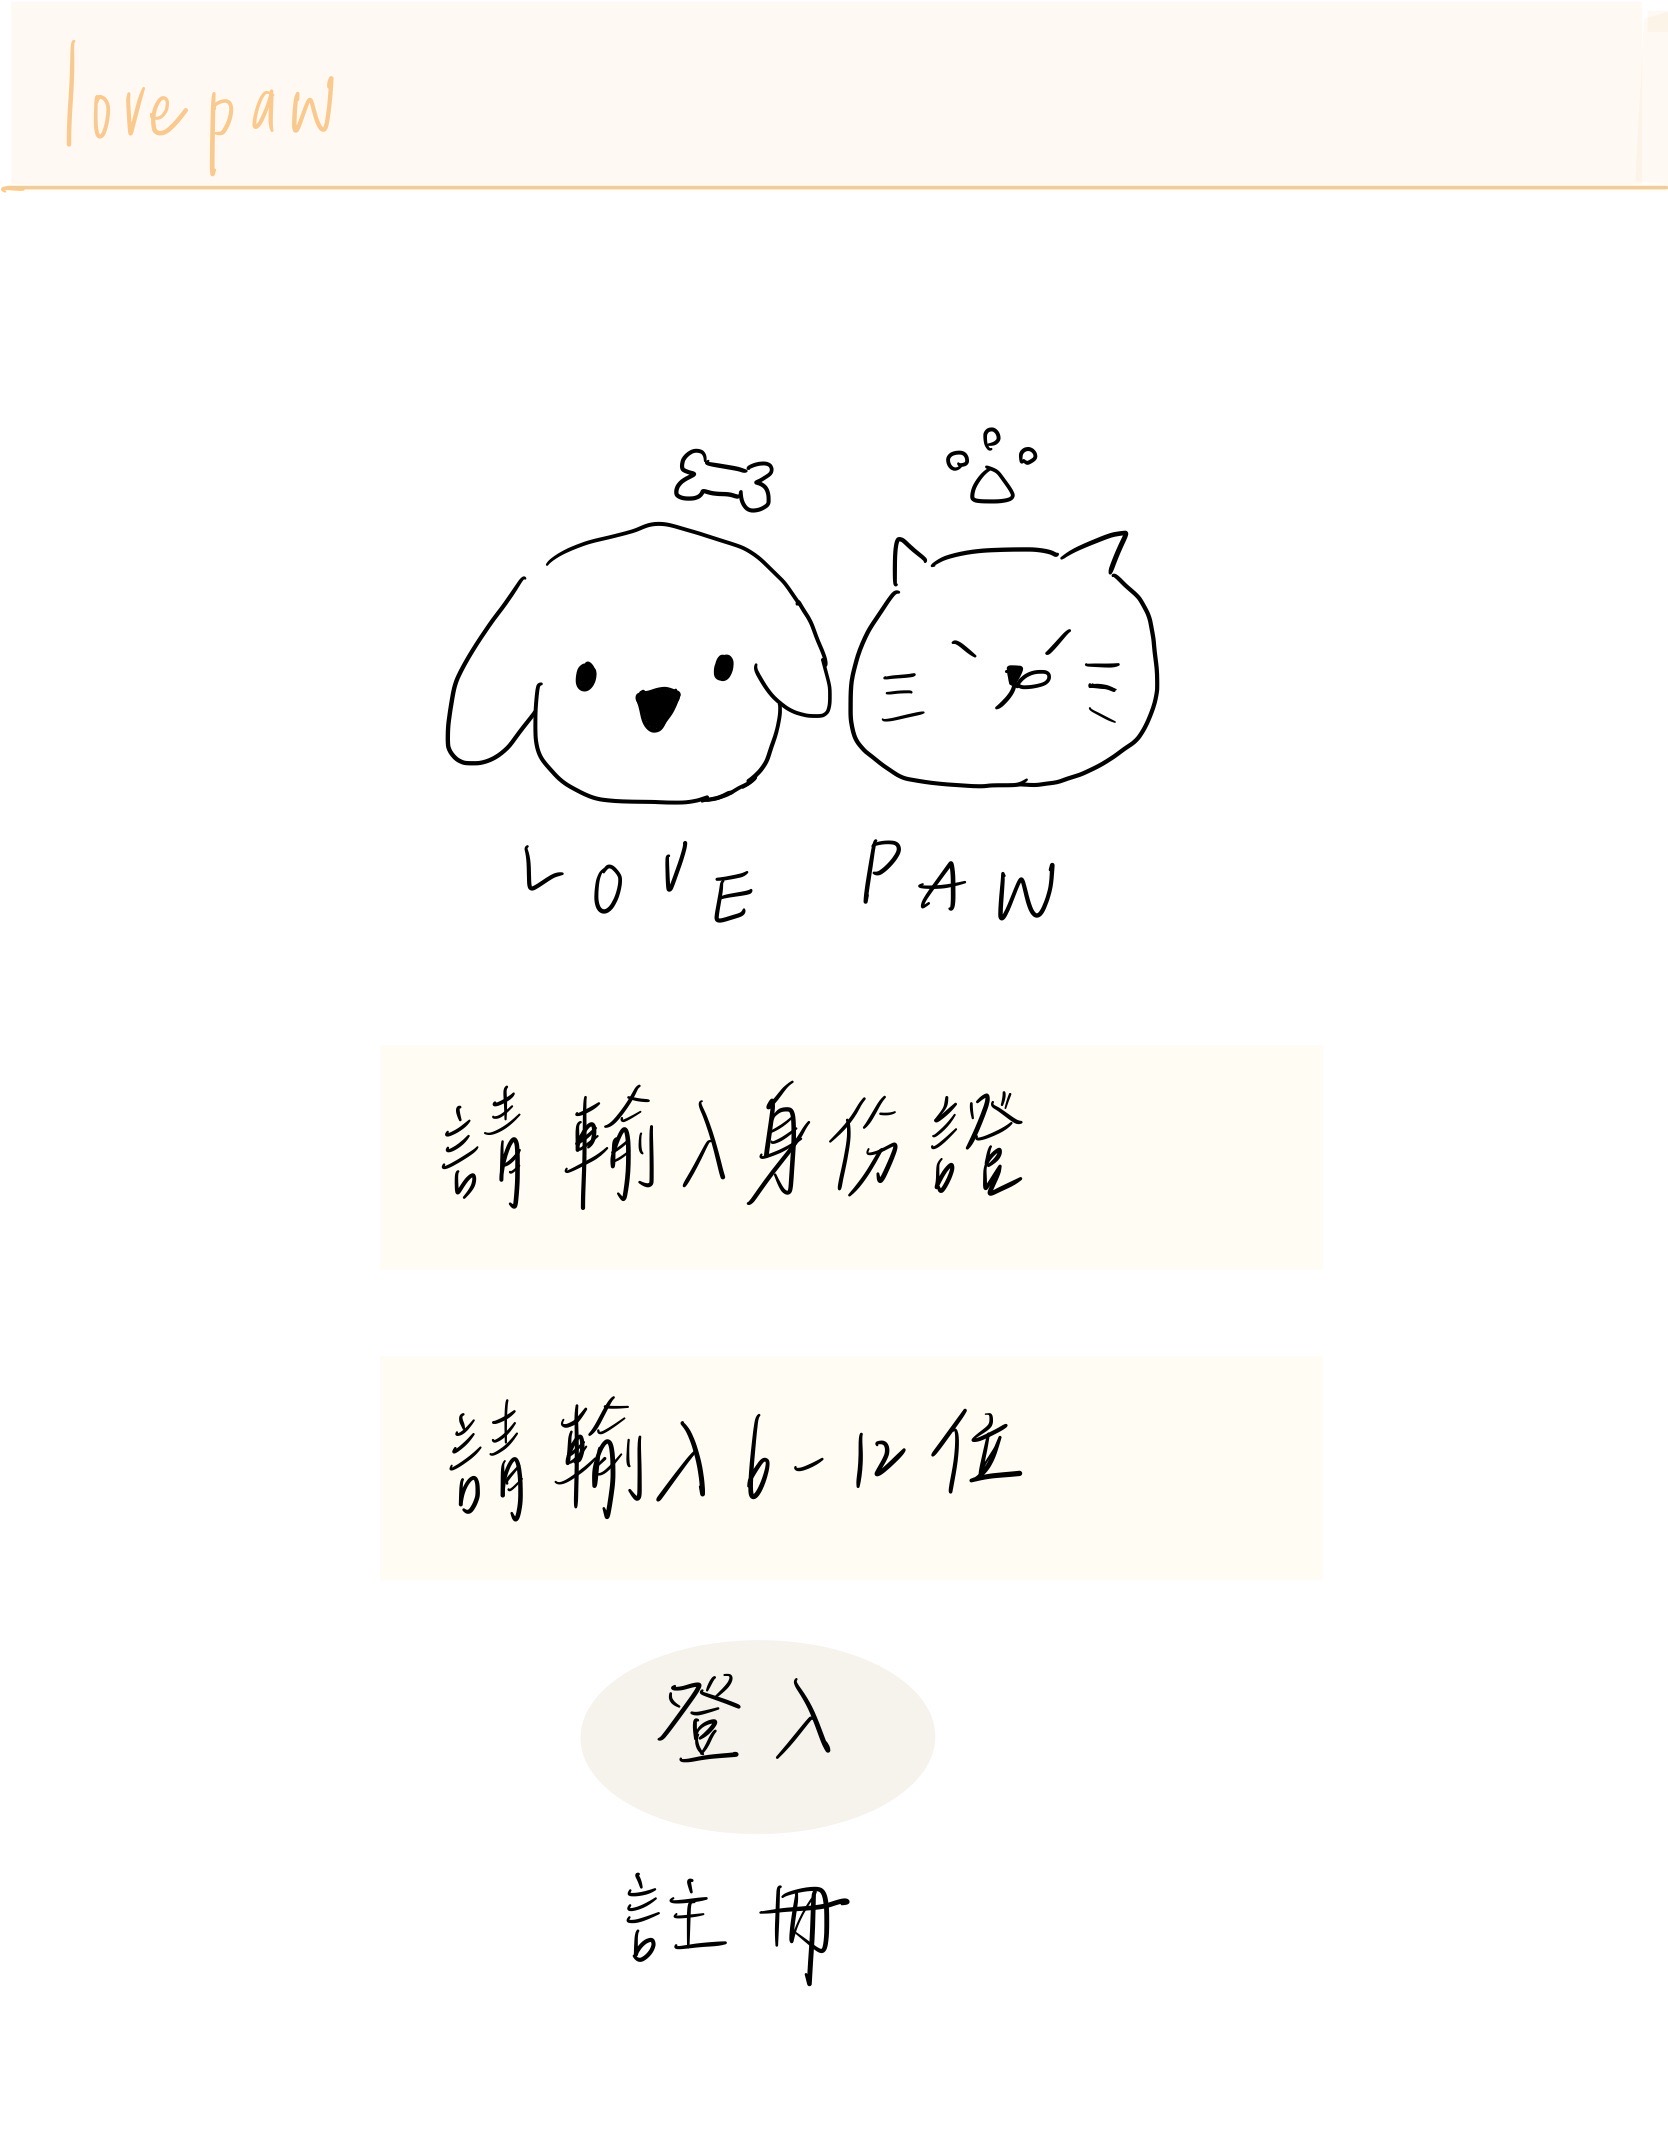 lovepaw
LOVE PAW
請輸入身份證
請輸入6-12位
登入
註冊